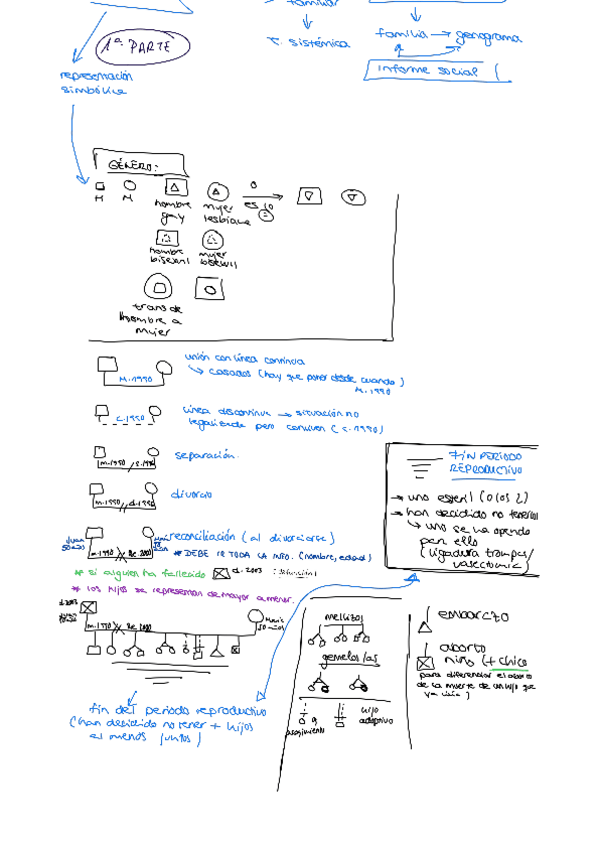 familiar
T. sistémica
familia → genograma
Informe social
1ª PARTE
representación
simbólica
GÉNERO:
H
M
hombre
gay
mujer
lesbiana
o
es lo
=
hombre
bisexual
mujer
bisexual
trans de
hombre a
mujer
M. 1990
unión con línea continua
↳ casados (hay que poner desde cuando)
M. 1990
c. 1990
línea discontinua → situación no
legalizada pero conviven (c. 1990)
m. 1990 / s. 1990
separación.
m. 1990 // d. 1990
divorcio
Juan
50 años
m. 1990 Re. 2000
reconciliación (al divorciarse)
* DEBE IR TODA LA INFO. (nombre, edad)
* si alguien ha fallecido
d. 2003
* los hijos se representan de mayor a menor.
d. 2003
m. 1990 Re. 2000
María
50 años
fin del periodo reproductivo
(han decidido no tener + hijos
al menos juntos)
FIN PERIODO
REPRODUCTIVO
→ uno esteril (o los 2)
→ han decidido no tenerlos
↳ uno se ha operado
para ello
(ligadura trompas/
vasectomia)
mellizos
gemelos/as
acogimiento
hijo
adoptivo
embarazo
aborto
niño (+ chico
para diferenciar el aborto
de la muerte de un hijo que
ya vivia)